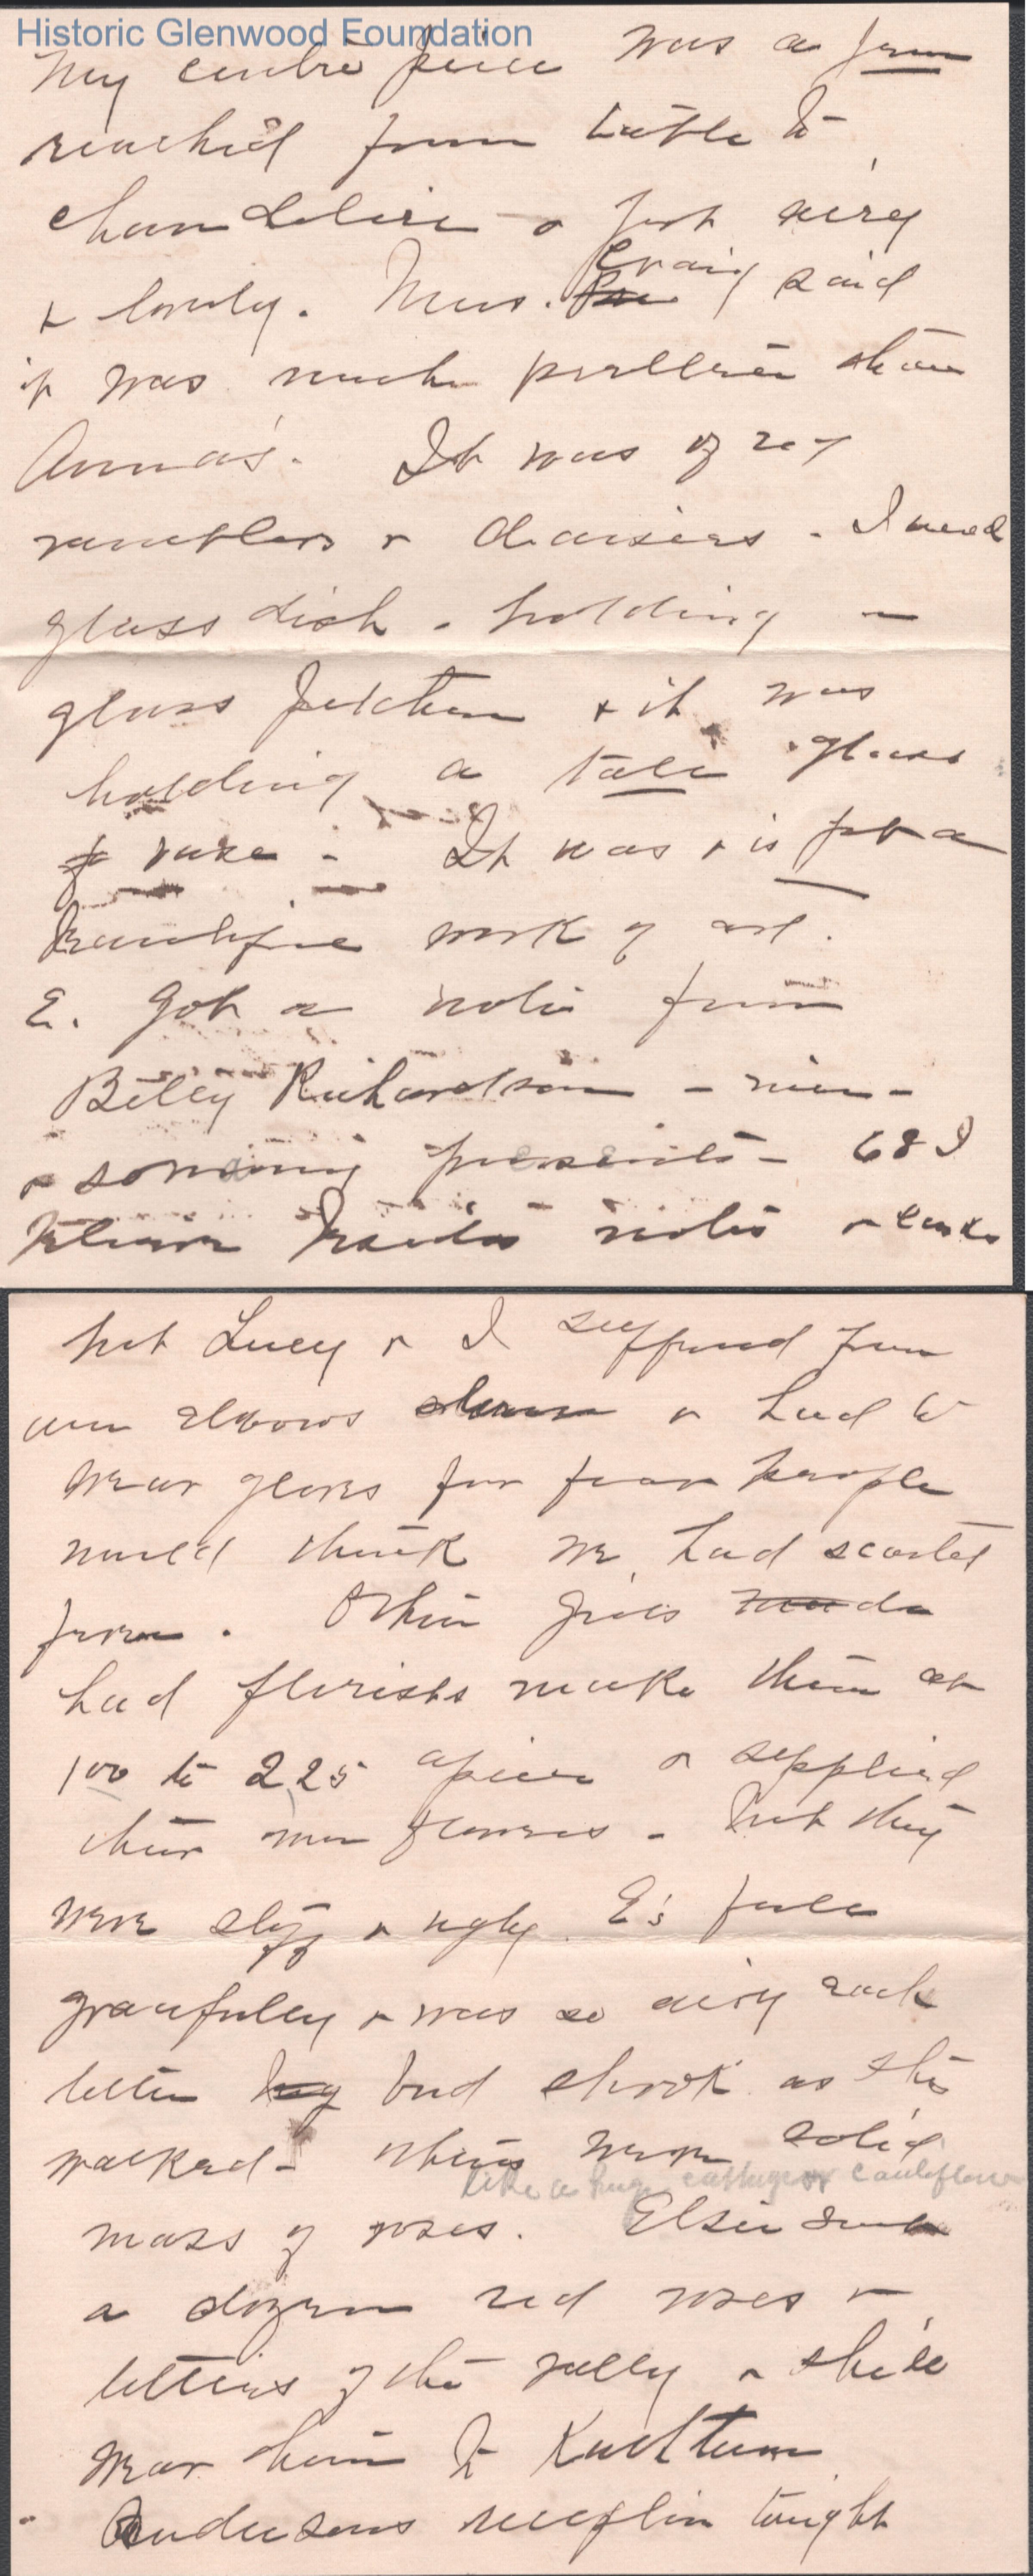 Historic Glenwood Foundation
My centre piece was a
reached from table to
chandelier & just airy
& lovely. Mrs. Craig said
it was much prettier than
Anna's. It was of red
ramblers & daisies. I used
glass dish - holding
glass pitcher & it was
holding a tall glass
vase - It was & is just a
beautiful work of art.
E. got a note from
Billy Richardson - nice -
& so many presents - 68 I
believe besides notes & cards
but Lucy & I suffered from
our elbows down & had to
wear gloves for fear people
would think we had scarlet
fever. Other girls
had florists make them at
100 to 225 apiece & supplied
their own flowers - but they
were stiff & ugly. E's fell
gracefully & was so airy each
letter bud shook as she
walked - others were solid
like a huge cabbage or cauliflower
mass of roses. Elsie sent
a dozen red roses &
letters of the valley & she'll
wear them to
Andersons reception tonight